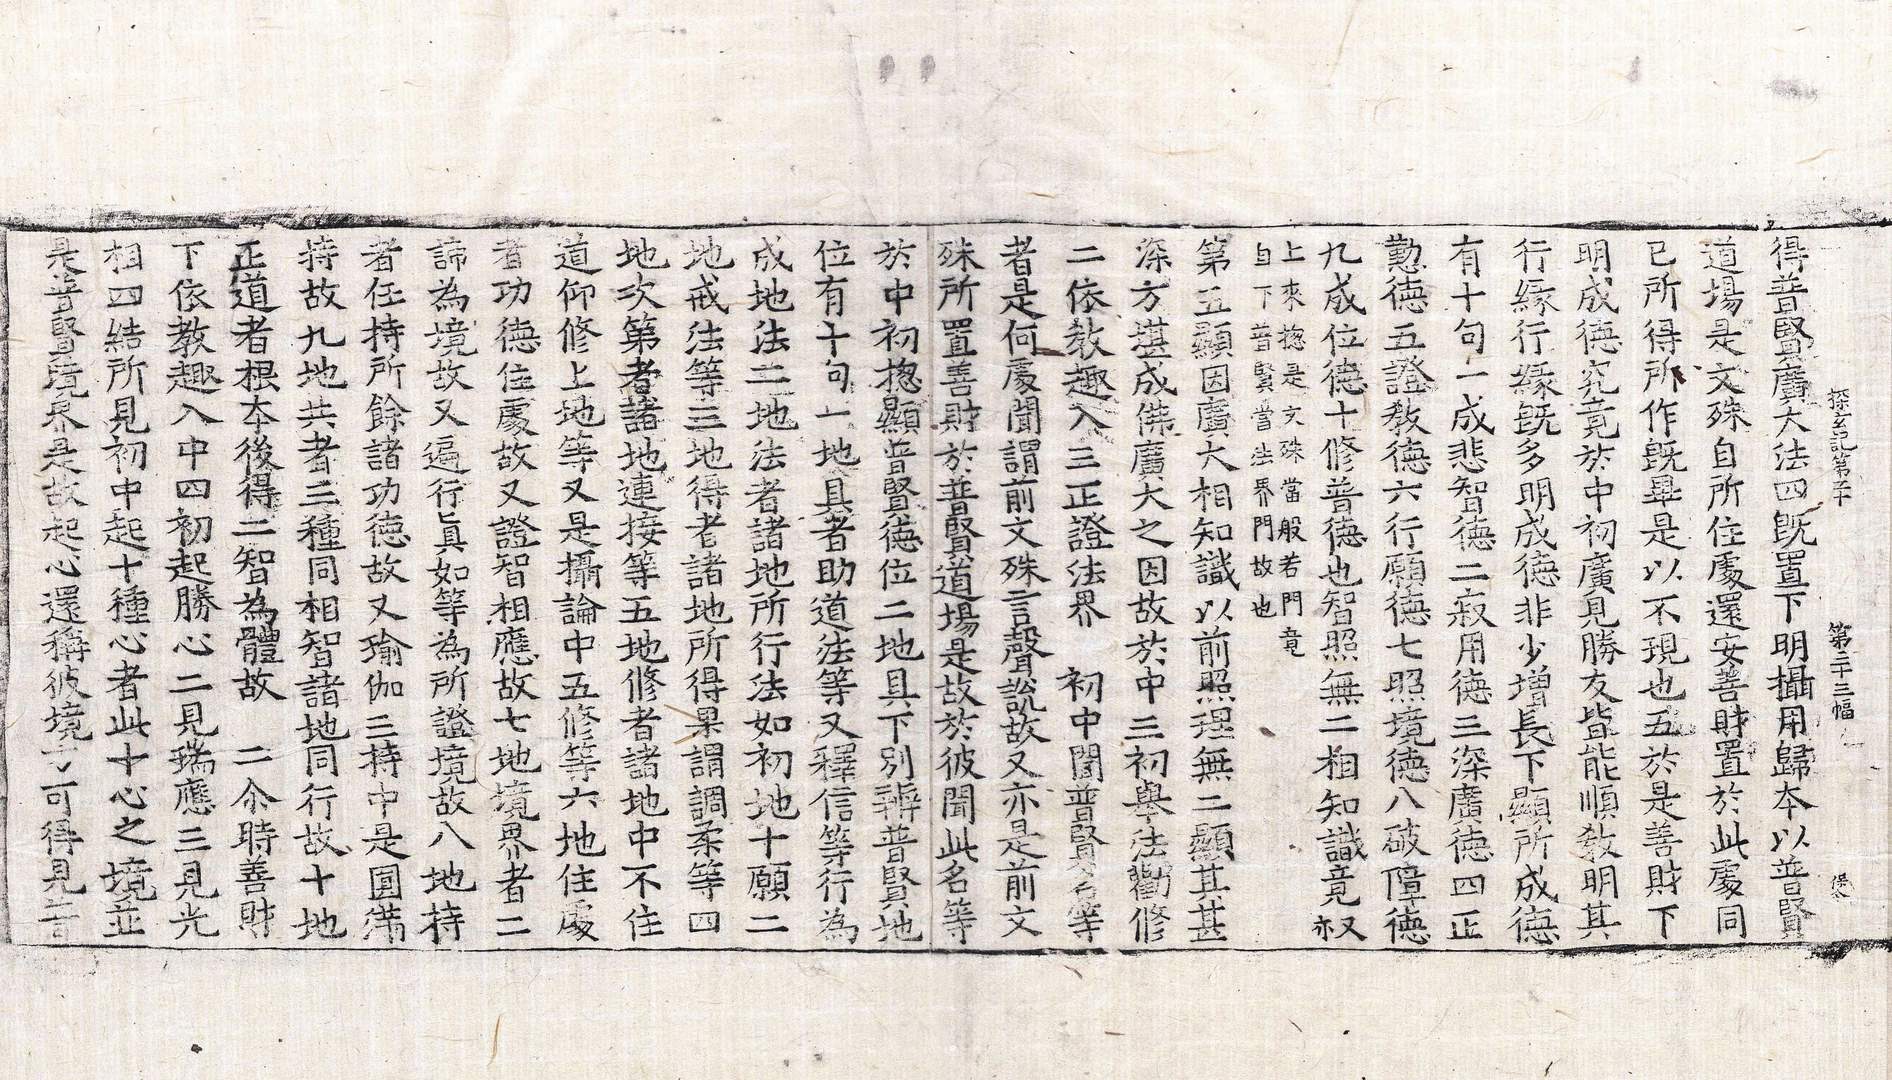 探玄記第二十 第三十三幅
得普賢廣大法四旣置下明攝用歸本以普賢
道場是文殊自所住處還安善財置於此處同
已所得所作旣畢是以不現也五於是善財下
明成德究竟於中初廣見勝友皆能順教明其
行緣行緣旣多明成德非少增長下顯所成德
有十句一成悲智德二寂用德三深廣德四正
懃德五證教德六行願德七照境德八破障德
九成位德十修普德也智照無二相知識竟 叔
上來揔是文殊當般若門竟
自下普賢當法界門故也
第五顯因廣大相知識以前照理無二顯其甚
深方堪成佛廣大之因故於中三初舉法勸修
二依教趣入三正證法界 初中聞普賢名等
者是何處聞謂前文殊言聲說故又亦是前文
殊所置善財於普賢道場是故於彼聞此名等
於中初揔顯普賢德位二地具下別辨普賢地
位有十句一地具者助道法等又釋信等行為
成地法二地法者諸地所行法如初地十願二
地戒法等三地得者諸地所得果謂調柔等四
地次第者諸地連接等五地修者諸地中不住
道仰修上地等又是攝論中五修等六地住處
者功德住處故又證智相應故七地境界者二
諦為境故又遍行眞如等為所證境故八地持
者任持所餘諸功德故又瑜伽三持中是圓滿
持故九地共者三種同相智諸地同行故十地
正道者根本後得二智為體故 二尒時善財
下依教趣入中四初起勝心二見瑞應三見光
相四結所見初中起十種心者此十心之境並
是普賢境界是故起心還稱彼境方可得見言